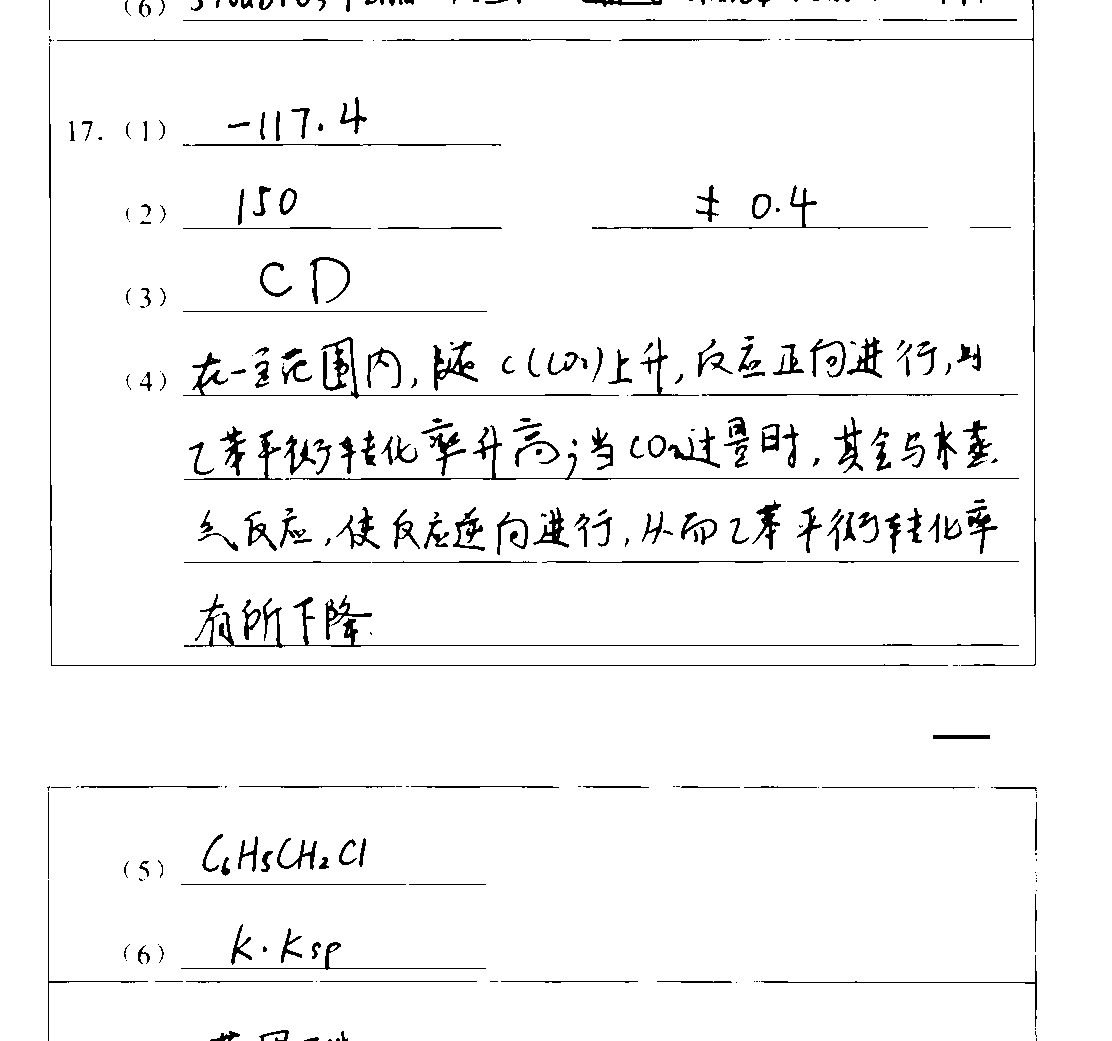 (6)
17. (1) -117.4
(2) 150 0.4
(3) CD
(4) 在一定范围内,随 c(CO₂)上升,反应正向进行,
乙苯平衡转化率升高;当CO₂过量时,其会与水蒸
气反应,使反应逆向进行,从而乙苯平衡转化率
有所下降.
(5) C₆H₅CH₂Cl
(6) K·Ksp